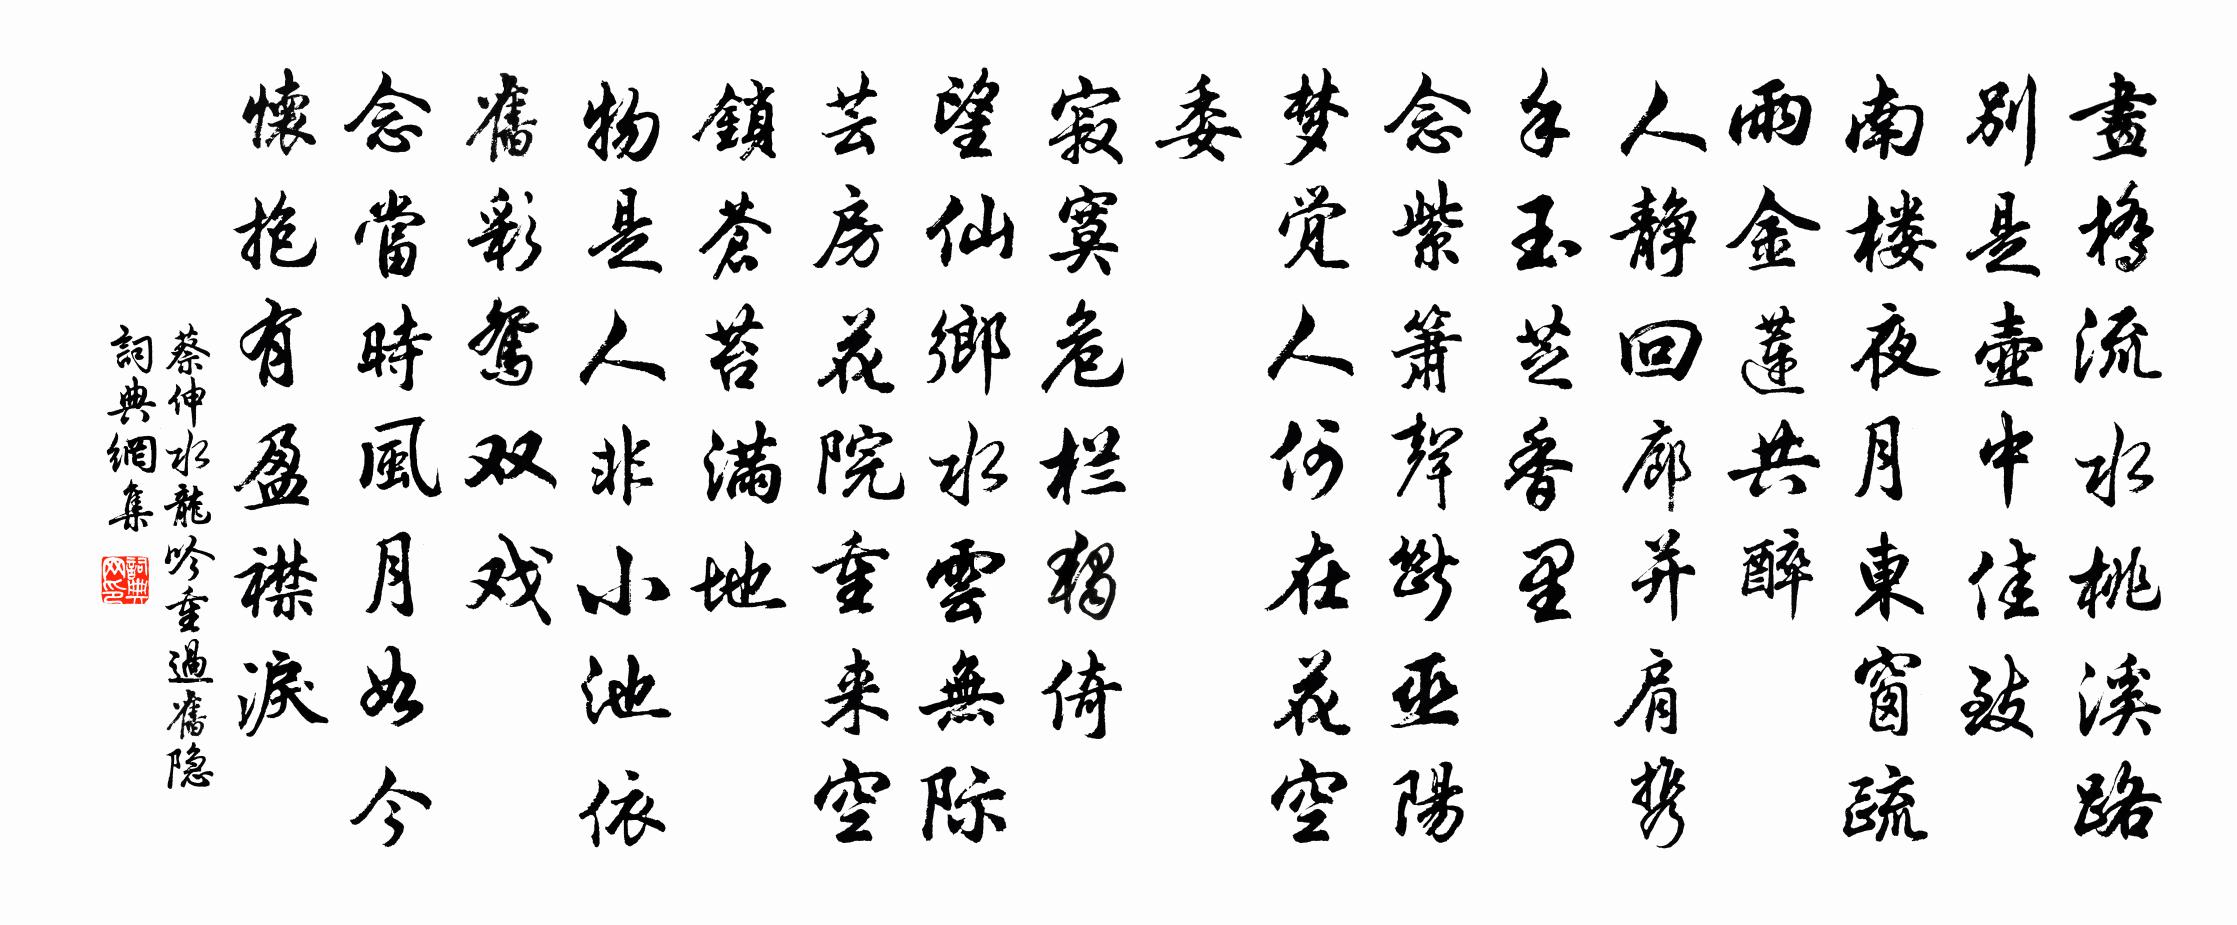 畫橋流水桃溪路
別是壺中佳致
南楼夜月東窗疏
雨金蓮共醉
人静回廊并肩携
手玉芝香里
念紫簫聲斷巫陽
梦觉人何在花空
委
寂寞危栏獨倚
望仙鄉水雲無际
芸房花院重来空
鎖蒼苔满地
物是人非小池依
舊彩鴛双戏
念當時風月如今
懷抱有盈襟淚
蔡伸水龍吟重過舊隐
詞典網集
詞典网印